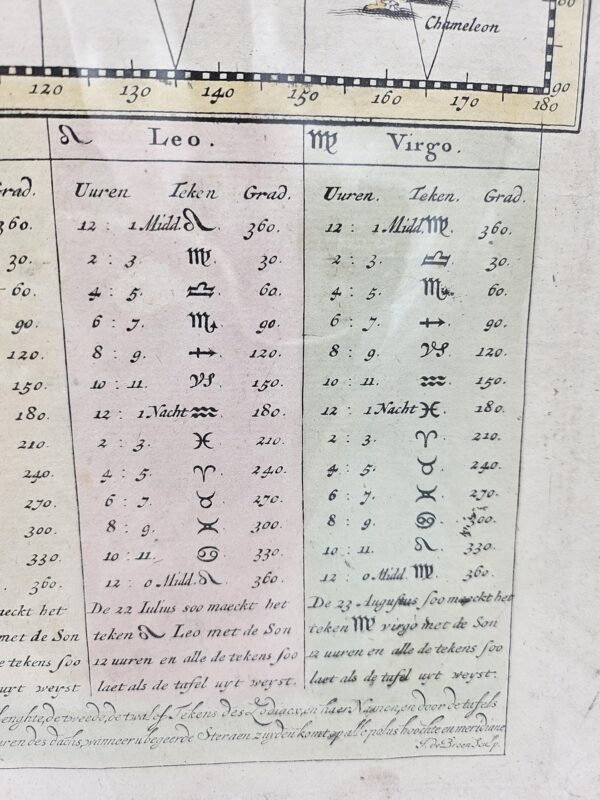 Chameleon
80
90
120 130 140 150 160 170 180
♌ Leo.
♍ Virgo.
Grad.
360.
30.
60.
90.
120.
150.
180.
210.
240.
270.
300.
330.
360.
maeckt het
met de Son
e tekens soo
uyt weyst
Uuren Teken Grad.
12 : 1 Midd. ♌ 360.
2 : 3. ♍ 30.
4 : 5. ♎ 60.
6 : 7. ♏ 90.
8 : 9. ♐ 120.
10 : 11. ♑ 150.
12 : 1 Nacht ♒ 180.
2 : 3. ♓ 210.
4 : 5. ♈ 240.
6 : 7. ♉ 270.
8 : 9. ♓ 300.
10 : 11. ♋ 330.
12 : 0 Midd. ♌ 360.
De 22 Iulius soo maeckt het
teken ♌ Leo met de Son
12 uuren en alle de tekens soo
laet als de tafel uyt weyst.
Uuren. Teken. Grad.
12 : 1 Midd. ♍ 360.
2 : 3. ♎ 30.
4 : 5. ♏ 60.
6 : 7. ♐ 90.
8 : 9. ♑ 120.
10 : 11. ♒ 150.
12 : 1 Nacht ♓ 180.
2 : 3. ♈ 210.
4 : 5. ♉ 240.
6 : 7. ♓ 270.
8 : 9. ♋ 300.
10 : 11. ♌ 330.
12 : 0 Midd. ♍ 360.
De 23 Augustus soo maeckt het
teken ♍ virgo met de Son
12 uuren en alle de tekens soo
laet als de tafel uyt weyst.
lenghte, de tweede, de twalef Tekens des Zodiacx, en haer Namen, en door de tafels
uren des dachs, wanneer u begeerde Sterren zuyden komt, op alle polus hoochte en meridiane
J. de Broen Sculp.